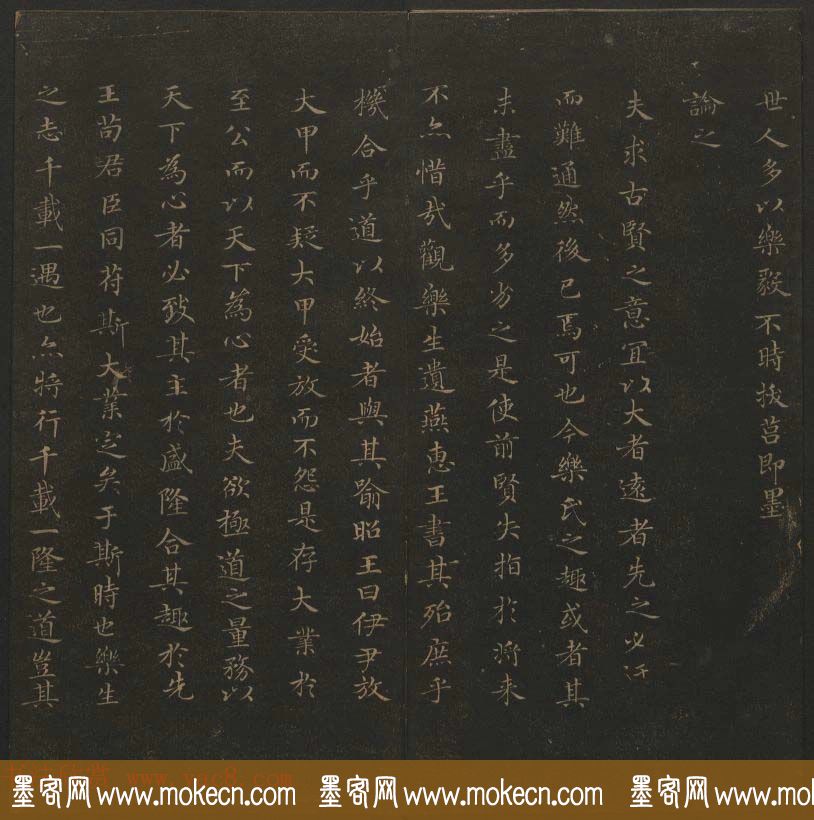 世人多以樂毅不時拔莒即墨
論之
夫求古賢之意宜以大者遠者先之必迂
而難通然後已焉可也今樂氏之趣或者其
未盡乎而多劣之是使前賢失指於將来
不亦惜哉觀樂生遺燕惠王書其殆庶乎
機合乎道以終始者與其喻昭王曰伊尹放
大甲而不疑大甲受放而不怨是存大業於
至公而以天下為心者也夫欲極道之量務以
天下為心者必致其主於盛隆合其趣於先
王苟君臣同符斯大業定矣于斯時也樂生
之志千載一遇也亦將行千載一隆之道豈其
www.yac8.com
墨客网 www.mokecn.com 墨客网 www.mokecn.com 墨客网 www.mo